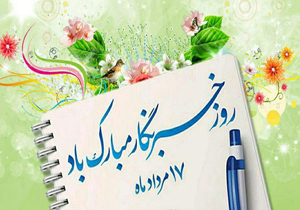 روز خبرنگار مبارک باد
۱۷ مرداد ماه